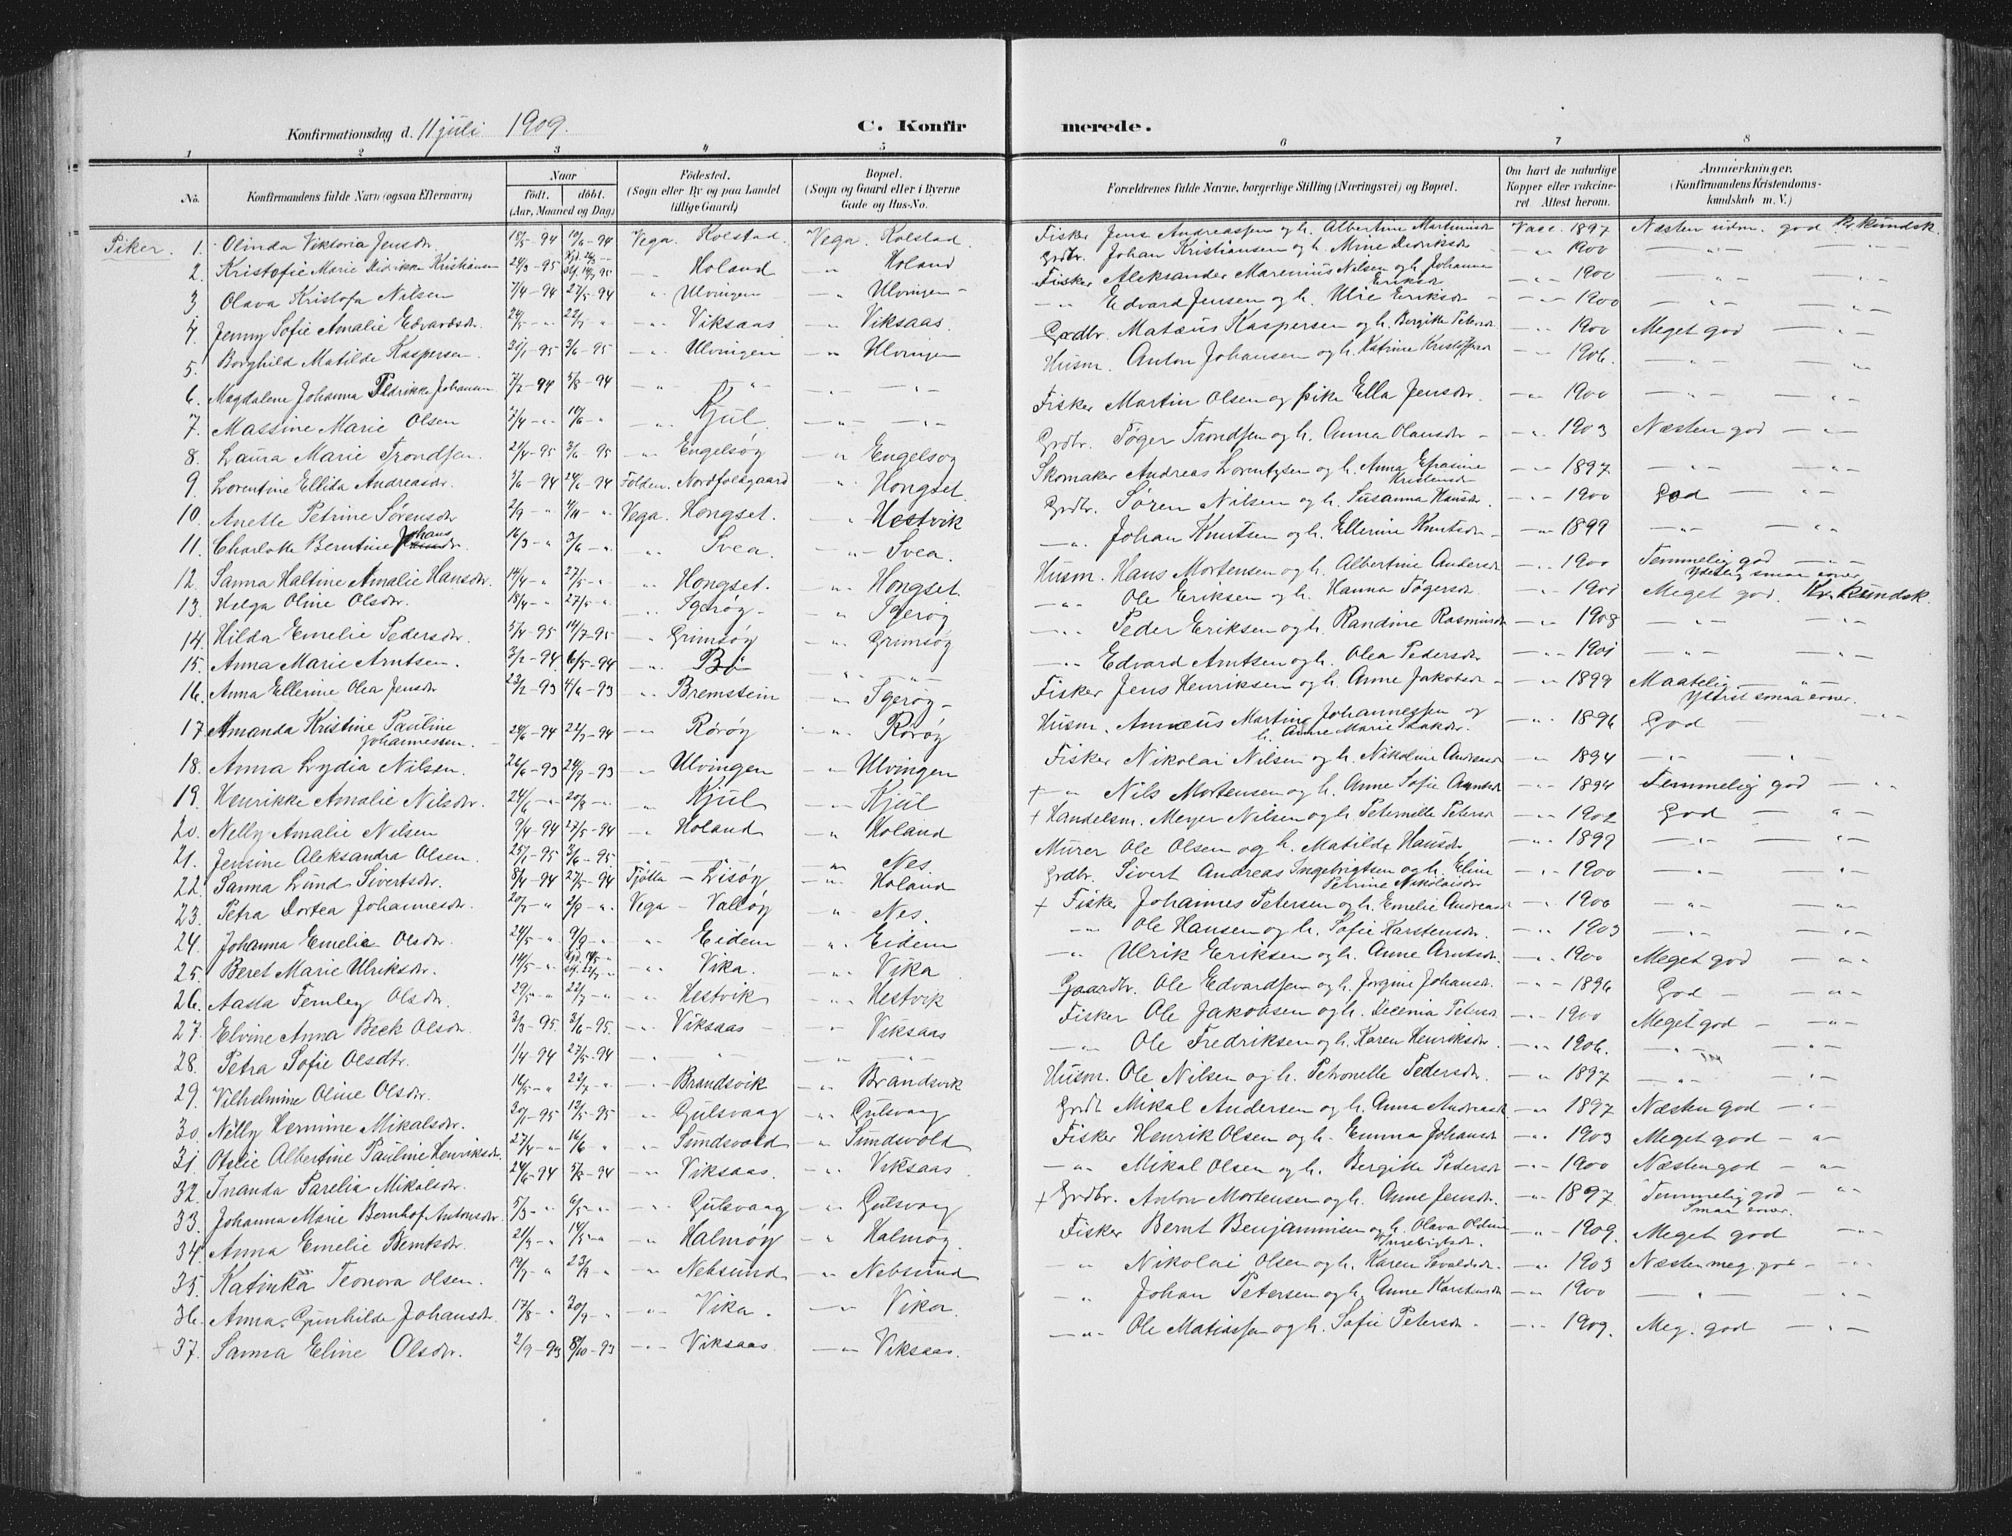 Konfirmationsdag d. 11 juli 1909.
C. Konfirmerede.
1 2 3 4 5 6 7 8
No. Konfirmandens fulde Navn (ogsaa Efternavn) Naar født. døbt. (Aar, Maaned og Dag) Fødested. (Sogn eller By og paa Landet tillige Gaard) Bopæl. (Sogn og Gaard eller i Byerne Gade og Hus-No. Forældrenes fulde Navne, borgerlige Stilling (Næringsvei) og Bopæl. Om havt de naturlige Kopper eller vaccineret Attest herom. Anmerkninger. (Konfirmandens Kristendomskundskab m. V.)
Piker. 1. Olinda Viktoria Jensdr. -94 10/6 -94 Vega. Kolstad. Vega. Kolstad. Fisker Jens Andreassen og h. Albertine Martinusdr Vacc. 1897 Næsten udm. god Kr. Kundsk.
2. Kristofie Marie Didrikke Kristiansen 24/3 -95 -"- Holand -"- Holand Grdbr. Johan Kristiansen og h. Mrine Didriksdr -"- 1900
3 Olava Kristofa Nilsen 7/4 -94 27/5 -94 -"- Ulvingen -"- Ulvingen - Fisker Aleksander Marenius Nilsen og h. Johanna Eriksdr -"- 1900 -"-
4. Jenny Sofie Amalie Edvardsdr. 24/5 -"- 22/7 " -"- Viksaas -"- Viksaas. -"- Edvard Jensen og h. Ulie Eriksdr -"- 1900 -"-
5. Borghild Matilde Kaspersen. 31/1 -95 3/6 -95 -"- Ulvingen -"- Ulvingen Grdbr. Matæus Kaspersen og h. Bergitte Petersdr -"- 1900 Meget god -"-
6. Magdalene Johanna Pedrikke Johansen 7/2 -94 5/8 -94 -"- -"- -"- Husm. Anton Johansen og h. Katrine Kristoffersdr -"- 1906. -"-
7. Massine Marie Olsen 7/4 -"- 10/6 -"- -"- Kjul -"- -"- Fisker Martin Olsen og pike Ella Jensdr. -"- 1900 -"-
8. Laura Marie Trondsen. 21/4 -95 3/6 -95 -"- Engelsøy -"- Engelsøy Grdbr. Tøger Trondsen og h. Anna Olausdr - -"- 1903 Næsten god -"-
9. Lorentine Ellida Andreasdr. 5/6 -94 24/6 -94 Folden. Nordfoldgaard -"- Hongset Skomaker Andreas Lorentzsen og h. Anna Efrasine Kristensdr -"- 1897 -"-
10. Anette Petrine Sørensdr 2/9 -"- 4/11 -"- Vega. Hongset. -"- Hestvik Grdbr. Søren Nilsen og h. Susanna Hansdr. -"- 1900 God -"-
11. Charlotte Berntine Johansdr. 16/3 -"- 3/6 -"- -"- Svea. -"- Svea. -"- Johan Knutsen og h. Ellerine Knutsdr - -"- 1899 -"-
12. Sanna Haltine Amalie Hansdr. 14/4 -"- 27/5 -"- -"- Hongset. -"- Hongset. Husm. Hans Mortensen og h. Albertine Andersdr -"- 1900 Temmelig god -"- Ydetlig smaa evner
13. Helga Oline Olsdr. 18/4 -"- 27/5 -"- -"- Igerøy- -"- Igerøy -"- Ole Eriksen og h. Hanna Tøgersdr. -"- 1901 Meget god. Kr. Kundsk.
14. Hilda Emelie Pedersdr. 5/4 -95 14/7 -95 -"- Grimsøy -"- Grimsøy -"- Peder Eriksen og h. Randine Rasmusdr -"- 1908 -"-
15. Anna Marie Arntsen. 3/2 -94. 6/5 -94 -"- Bø -"- Edvard Arntsen og h. Olea Pedersdr -"- 1901 -"-
16. Anna Ellerine Olea Jensdr 23/2 -93 4/6 -93 -"- Bremstein -"- Igerøy - Fisker Jens Henriksen og h. Anne Jakobsdr - -"- 1899 Maatelig -"- Yderst smaa evner.
17 Amanda Kristine Pauline Johannessen. 29/6 -94 22/7 -94 -"- Rørøy -"- Rørøy Husm. Annæus Martinus Johannessen og h. Anne Marie Isaksdr. -"- 1896 God -"-
18. Anna Lydia Nilsen. 26/6 -93 24/9 -93 -"- Ulvingen -"- Ulvingen Fisker Nikolai Nilsen og h. Nikoline Andreasdr -"- 1894 -"-
19. Henrikke Amalie Nilsdr. 24/6 -"- 20/8 -"- -"- Kjul -"- Kjul + -"- Nils Mortensen og h. Anne Sofie Amundsdr -"- 1894 Temmelig god -"-
20. Nelly Amalie Nilsen 9/4 -94 27/5 -94 -"- Holand -"- Holand + Handelsm. Meyer Nilsen og h. Peternelle Petersdr -"- 1902 God -"-
21. Jensine Aleksandra Olsen. 25/1 -95 3/6 -95. -"- Nes Murer Ole Olsen og h. Matilde Hansdr -"- 1899 -"-
22. Sanna Lund Sivertsdr. 8/4 -94 27/5 -94 Tjøtta - Lisøy -"- Holand Grdbr. Sivert Andreas Ingebrigtsen og h. Eline Petrine Nikolaisdr -"- 1900 -"-
23. Petra Dortea Johannesdr. 20/7 -"- 2/9 -"- Vega - Valløy -"- Nes. + Fisker Johannes Petersen og h. Emelie Andreasdr -"- 1900 -"-
24. Johanna Emelie Olsdr. 24/5 -"- 9/9 -"- -"- Eidem -"- Eidem -"- Ole Hansen og h. Sofie Karstensdr. -"- 1903 -"-
25. Beret Marie Ulriksdr. 14/5 -"- -"- Vika. -"- Vika -"- Ulrik Eriksen og h. Anne Arntsdr. -"- 1900 Meget god -"-
26. Aasta Ternley Olsdr. 29/5 -"- 22/7 -"- -"- Hestvik -"- Hestvik Gaardbr. Ole Edvardsen og h. Jørgine Johansdr. -"- 1896 God -"-
27. Elvine Anna Beck Olsdr. 3/3 -95. 3/6 -95. -"- Viksaas -"- Viksaas Fisker Ole Jakobsen og h. Decenia Petersdr -"- 1900 Meget god -"-
28. Petra Sofie Olsdtr. 1/4 -94 27/5 -94 -"- -"- -"- Ole Fredriksen og h. Karen Henriksdr. -"- 1906. -"-
29. Vilhelmine Oline Olsdr. 16/5 -"- 22/7 -"- -"- Brandsvik -"- Brandsvik Husm. Ole Nilsen og h. Petronelle Pedersdr. -"- 1897 -"-
30. Nelly Hermine Mikalsdr. 20/1 -95 12/5 -95 -"- Gulsvaag -"- Gulsvaag Grdb Mikal Andersen og h. Anna Andreasdr -"- 1897 Næsten god -"-
31. Otelie Albertine Pauline Henriksdr. 27/4 -"- 16/6 " -"- Sundsvold -"- Sundsvold Fisker Henrik Olsen og h. Emma Johansdr -"- 1903 Meget god -"-
32. Inanda Parelia Mikalsdr. 24/6 -94 5/8 -94 -"- Viksaas. -"- Viksaas -"- Mikal Olsen og h. Bergitte Pedersdr -"- 1900 Næsten god -"-
33. Johanna Marie Bernhof Antonsdr. 5/3 -"- 6/5 -"- -"- Gulsvaag -"- Gulsvaag + Grdbr. Anton Mortensen og h. Anne Jensdr. -"- 1897 Temmelig god -"- Smaa evner.
34. Anna Emelie Berntsdr. 21/3 -"- 14/5 -"- -"- Halmøy -"- Halmøy. Fisker Bernt Benjaminsen og h. Olava Oldine Ingebrigtsdr. -"- 1909. Meget god -"-
35. Katinka Teonora Olsen. 19/7 -"- 23/9 -"- -"- Nebsund -"- Nebsund -"- Nikolai Olsen og h. Karen Sevaldsdr. -"- 1903 Næsten meg. god -"-
36. Anna Gunhilde Johansdr. 17/8 -"- 30/9 -"- -"- Vika. -"- Vika. -"- Johan Petersen og h. Anne Karstensdr -"- 1900 -"-
37. Sanna Eline Olsdr. 2/9 -93 8/10 -93 -"- Viksaas. -"- Viksaas. -"- Ole Matiassen og h. Sofie Petersdr. -"- 1909. Meg. god -"-